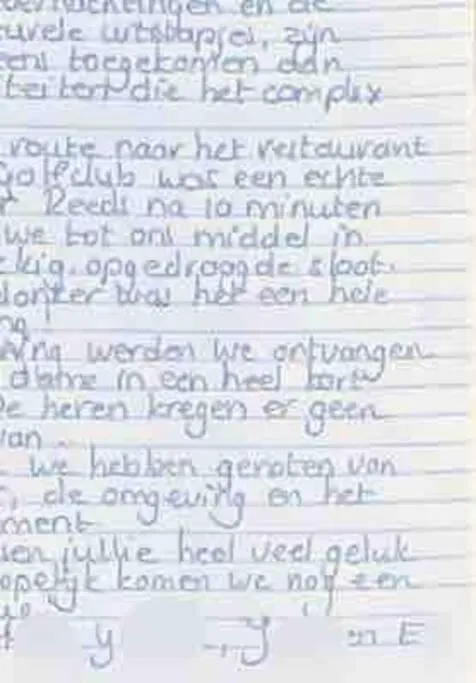 en de
uitstapjes, zijn
toegekomen dan
die het complex
route naar het restaurant
golfclub was een echte
Reeds na 10 minuten
we tot ons middel in
opgedroogde sloot.
donker was het een hele
ng
werden we ontvangen
dame in een heel kort
De heren kregen er geen
van
we hebben genoten van
, de omgeving en het
ment
jullie heel veel geluk
komen we nog een
y -, y en E